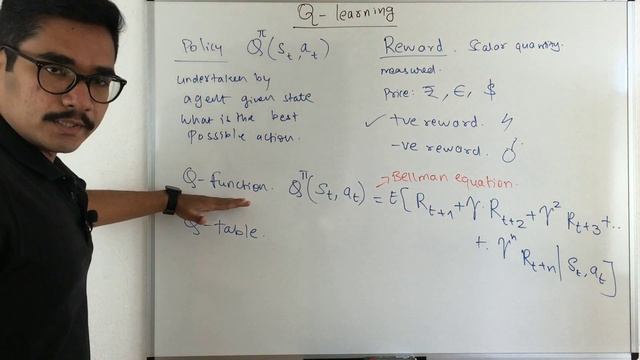 Q-learning
Policy Q^π(S_t, a_t)
undertaken by
agent given state
what is the best
possible action.
Reward. Scalar quantity.
measured.
Price: ₹, €, $
✓ +ve reward.
-ve reward.
Q-function. Q^π(S_t, a_t) = E[R_{t+1} + γ. R_{t+2} + γ² R_{t+3} + ..
→ Bellman equation.
+. γ^n R_{t+n} | S_t, a_t]
Q-table.